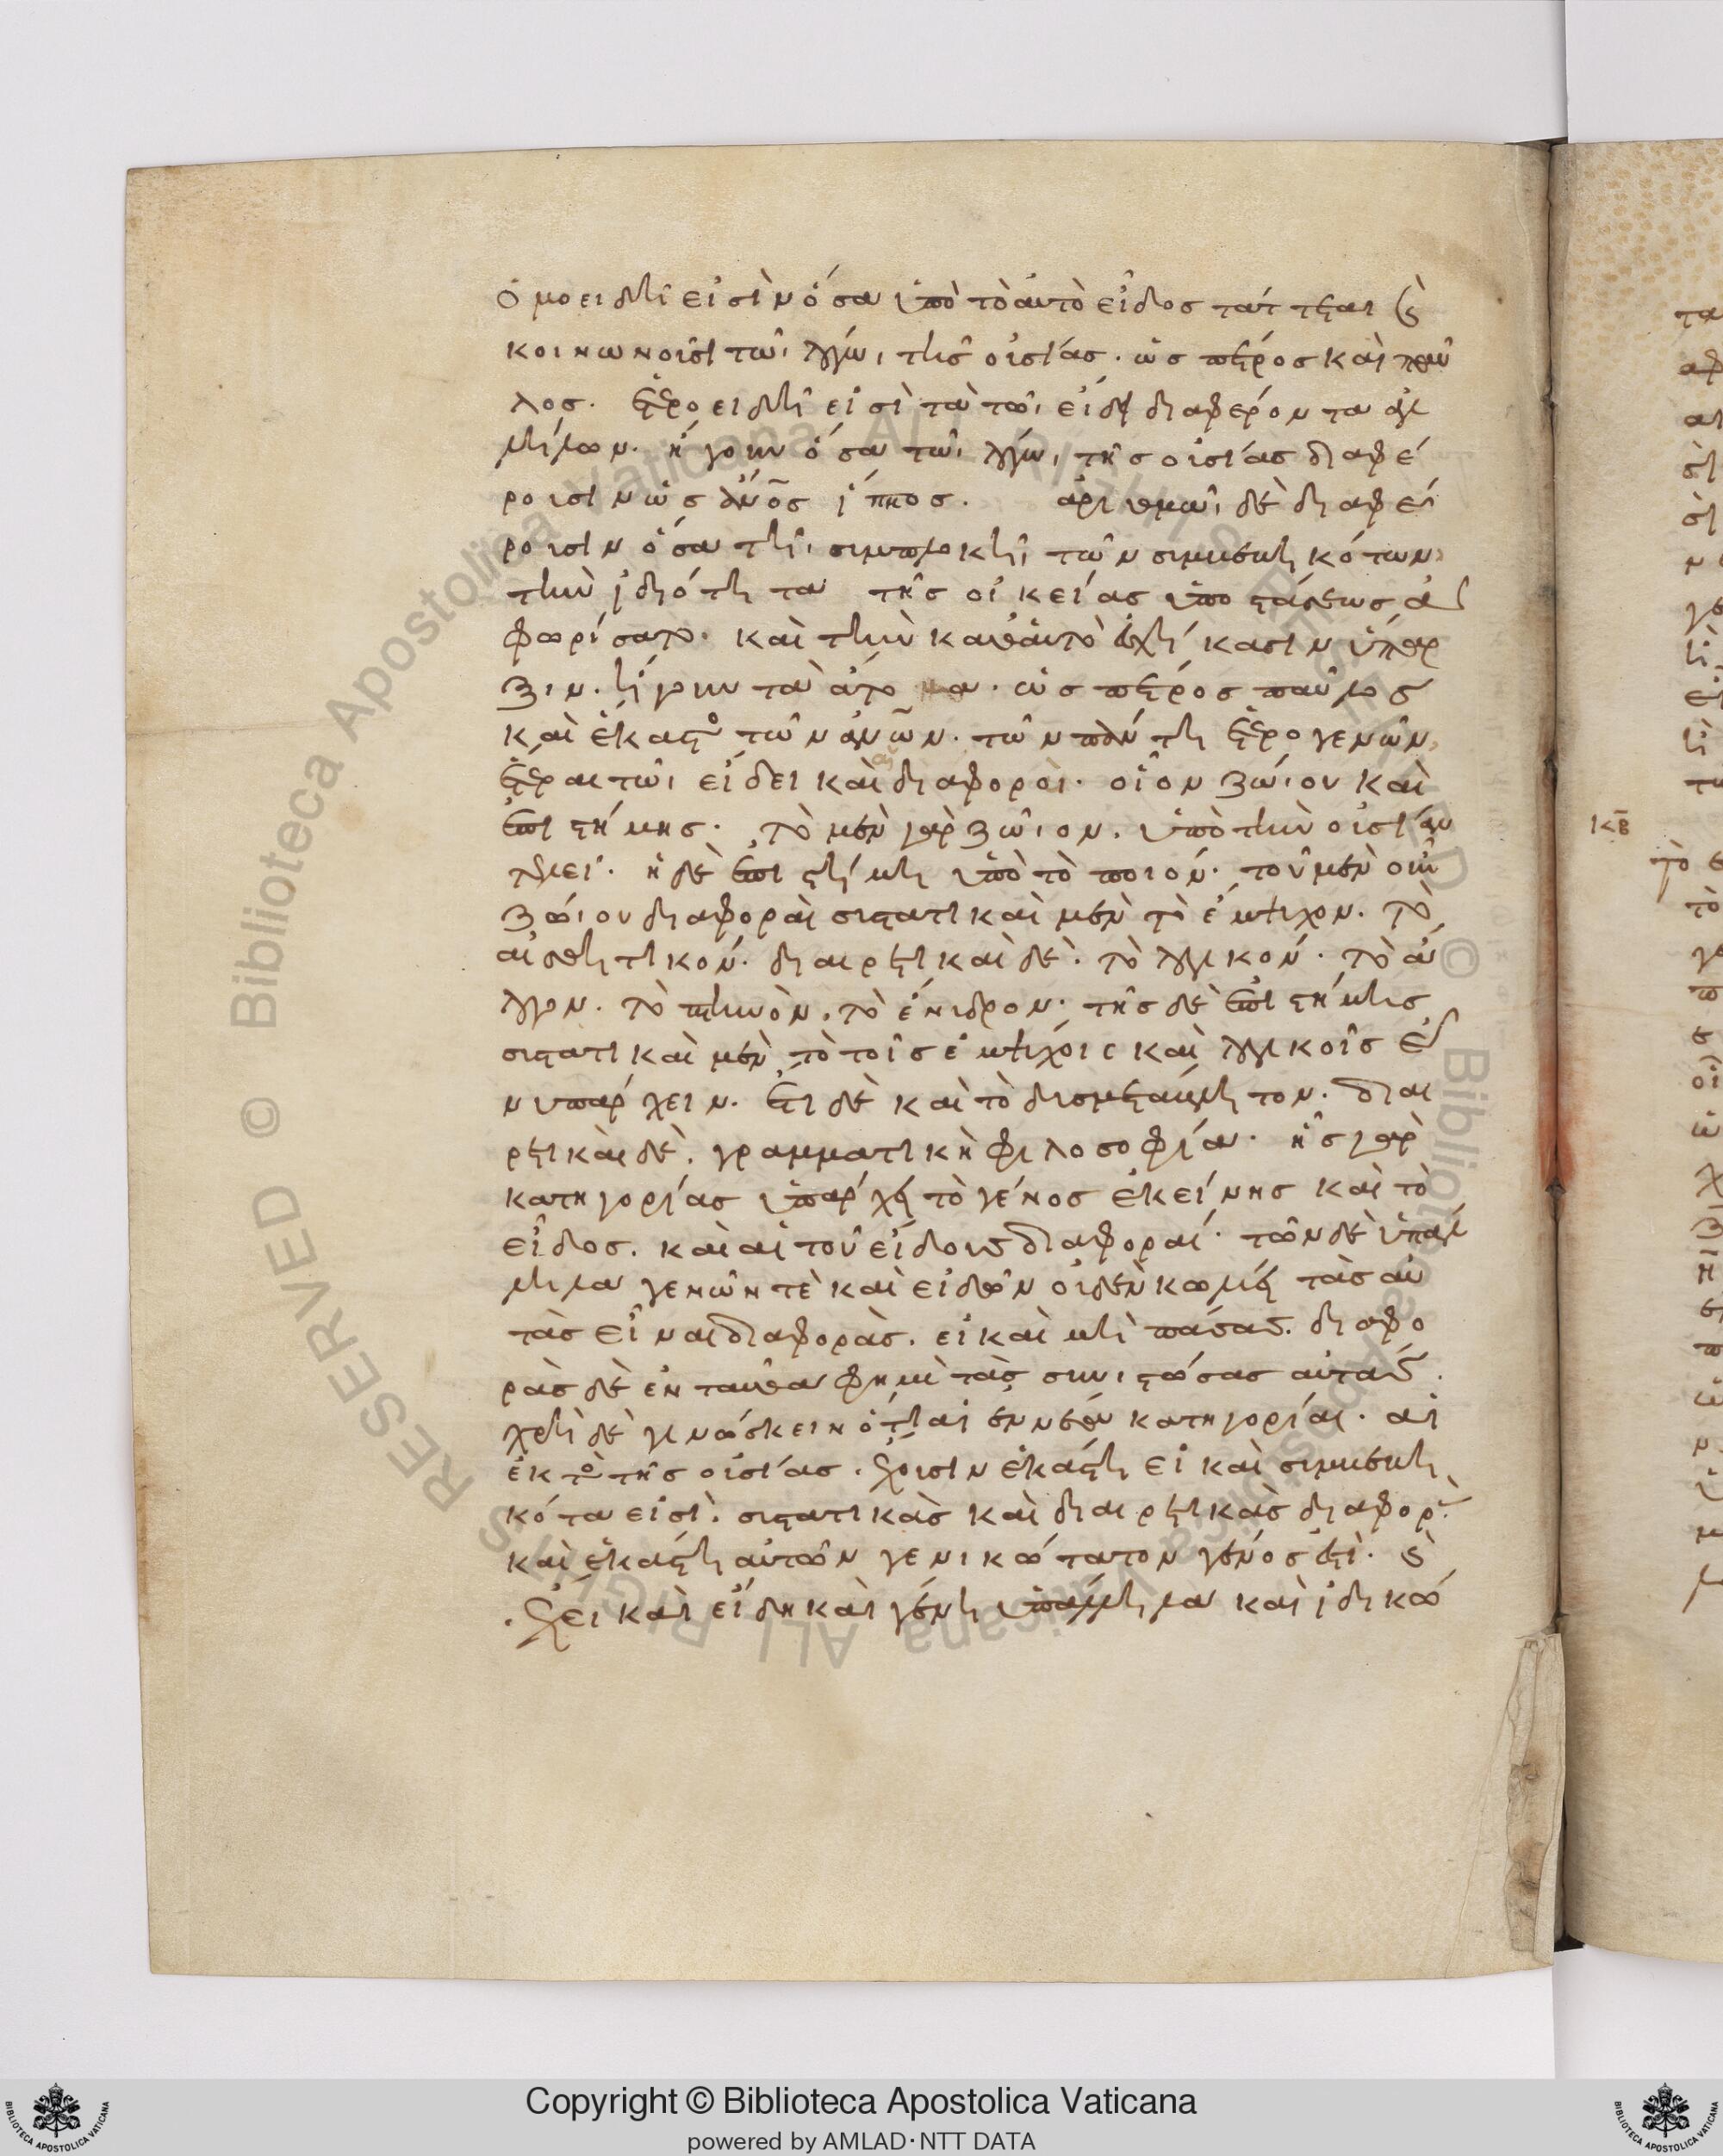 ὁμοειδῆ εἰσὶν ὅσα ὑπὸ τὸ αὐτὸ εἶδος τάττεται (καὶ)
κοινωνοῦσι τῶι λόγωι τῆς οὐσίας· ὡς πέτρος καὶ παῦ
λος· ἑτεροειδῆ εἰσὶ τὰ τῶι εἴδει διαφέροντα ἀλ
λήλων· ἤγουν ὅσα τῶι λόγωι τῆς οὐσίας διαφέ
ρουσιν ὡς ἄνος ἵππος· ἀριθμῶι δὲ διαφέ
ρουσιν ὅσα τῆι συμπλοκῆι τῶν συμβεβηκότων
τὴν ἰδιότητα τῆς οἰκείας ὑποστάσεως ἀ
φωρίσατο· καὶ τὴν καθαυτὸ εἰλήχασιν ὕπαρ
ξιν· ἤγουν τὰ ἄτομα· ὡς πέτρος παῦλος
καὶ ἕκαστος τῶν ἀνων· τῶν πάντη ἑτερογενῶν
ἕτεραι τῶι εἴδει καὶ αἱ διαφοραί· οἷον ζώιου καὶ
ἐπιστήμης· τὸ μὲν γὰρ ζῶιον, ὑπὸ τὴν οὐσίαν
τελεῖ· ἡ δὲ ἐπιστήμη ὑπὸ τὸ ποιόν· τοῦ μὲν οὖν
ζώιου διαφοραὶ συστατικαὶ μὲν τὸ ἔμψυχον· τὸ
αἰσθητικόν· διαιρετικαὶ δὲ· τὸ λογικόν· τὸ ἄ
λογον· τὸ πτηνὸν· τὸ ἔνυδρον· τῆς δὲ ἐπιστήμης
συστατικαὶ μὲν τὸ τοῖς ἐμψύχοις καὶ λογικοῖς ἐ
νυπάρχειν· ἔτι δὲ καὶ τὸ δυσμετάβλητον· διαι
ρετικαὶ δὲ· γραμματικὴ φιλοσοφία· ἧς γὰρ
κατηγορίας ὑπάρχει τὸ γένος ἐκείνης καὶ τὸ
εἶδος· καὶ αἱ τοῦ εἴδους διαφοραί· τῶν δὲ ὑπαλ
λήλα γενῶν τὲ καὶ εἰδῶν οὐδὲν κωλύει τὰς αὐ
τὰς εἶναι διαφοράς· εἰ καὶ μὴ πάσας· διαφο
ρὰς δὲ ἐνταῦθα φημὶ τὰς συνιστώσας αὐτάς·
χρὴ δὲ γινώσκειν ὅτι αἱ ἐννέα κατηγορίαι· αἱ
ἐκτὸς τῆς οὐσίας· ἔχουσιν ἑκάστη εἰ καὶ συμβεβη
κότα εἰσὶ· συστατικὰς καὶ διαιρετικὰς διαφορ(ὰς)
καὶ ἑκάστη αὐτῶν γενικώτατον γένος ἐστὶ· (καὶ)
ἔχει καὶ εἴδη καὶ γένη ὑπάλληλα καὶ ἰδικώ
κβ